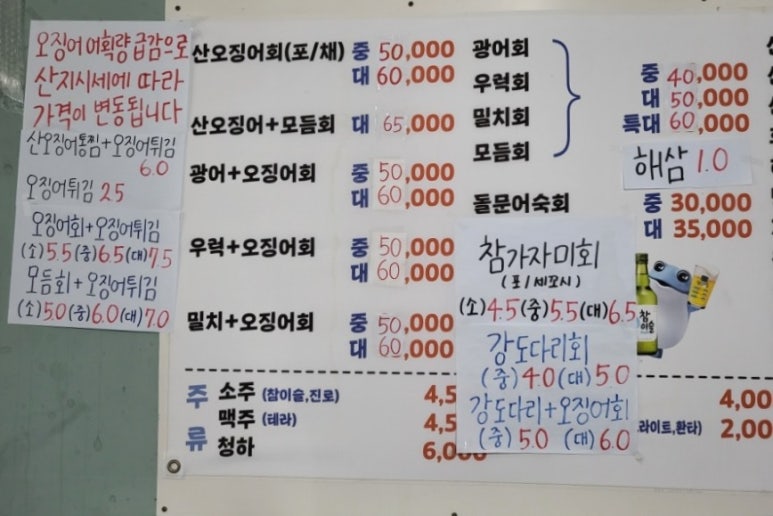 오징어 어획량 급감으로
산지시세에 따라
가격이 변동됩니다
산오징어통찜+오징어튀김
6.0
오징어튀김 25
오징어회+오징어튀김
(소)5.5(중)6.5(대)7.5
모듬회+오징어튀김
(소)5.0(중)6.0(대)7.0
산오징어회(포/채) 중 50,000
대 60,000
산오징어+모듬회 대 65,000
광어+오징어회 중 50,000
대 60,000
우럭+오징어회 중 50,000
대 60,000
밀치+오징어회 중 50,000
대 60,000
광어회
우럭회
밀치회
모듬회
중 40,000
대 50,000
특대 60,000
해삼 1.0
돌문어숙회 중 30,000
대 35,000
참가자미회
(포/세꼬시)
(소)4.5(중)5.5(대)6.5
강도다리회
(중)4.0(대)5.0
강도다리+오징어회
(중)5.0 (대)6.0
참이슬
주류
소주 (참이슬,진로) 4,5
맥주 (테라) 4,5
청하 6,000
4,00
라이트,환타) 2,00